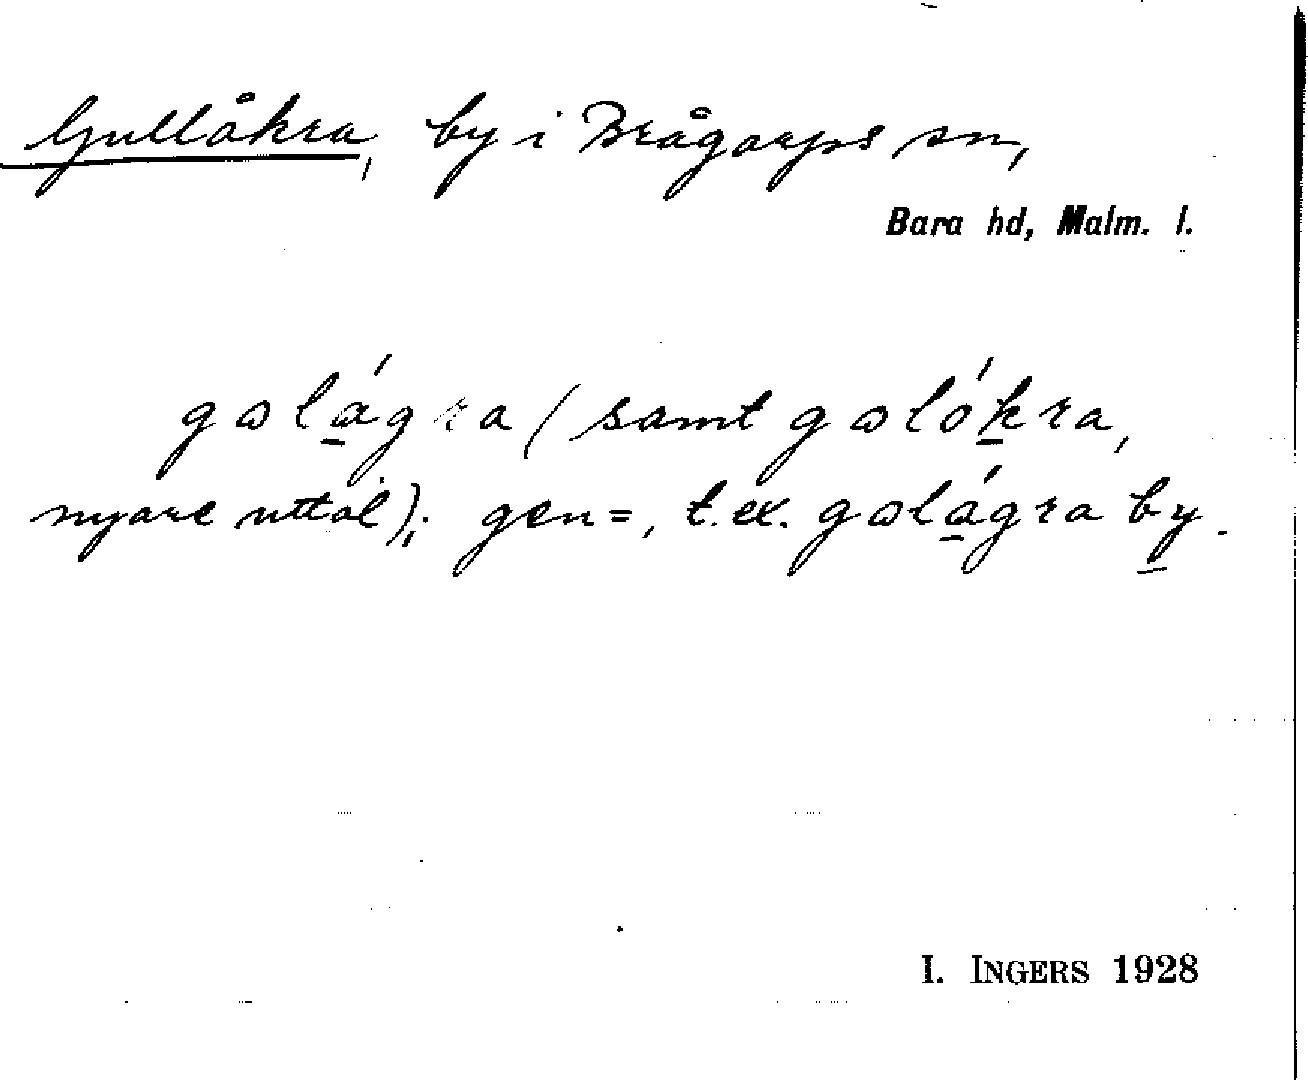 Gullåkra, by i Brågarps sn,
Bara hd, Malm. l.
gɷlá̱gra (samt gɷlóḵra,
nyare uttal); gen =, t.ex. gɷlá̱gra by̱.
I. INGERS 1928